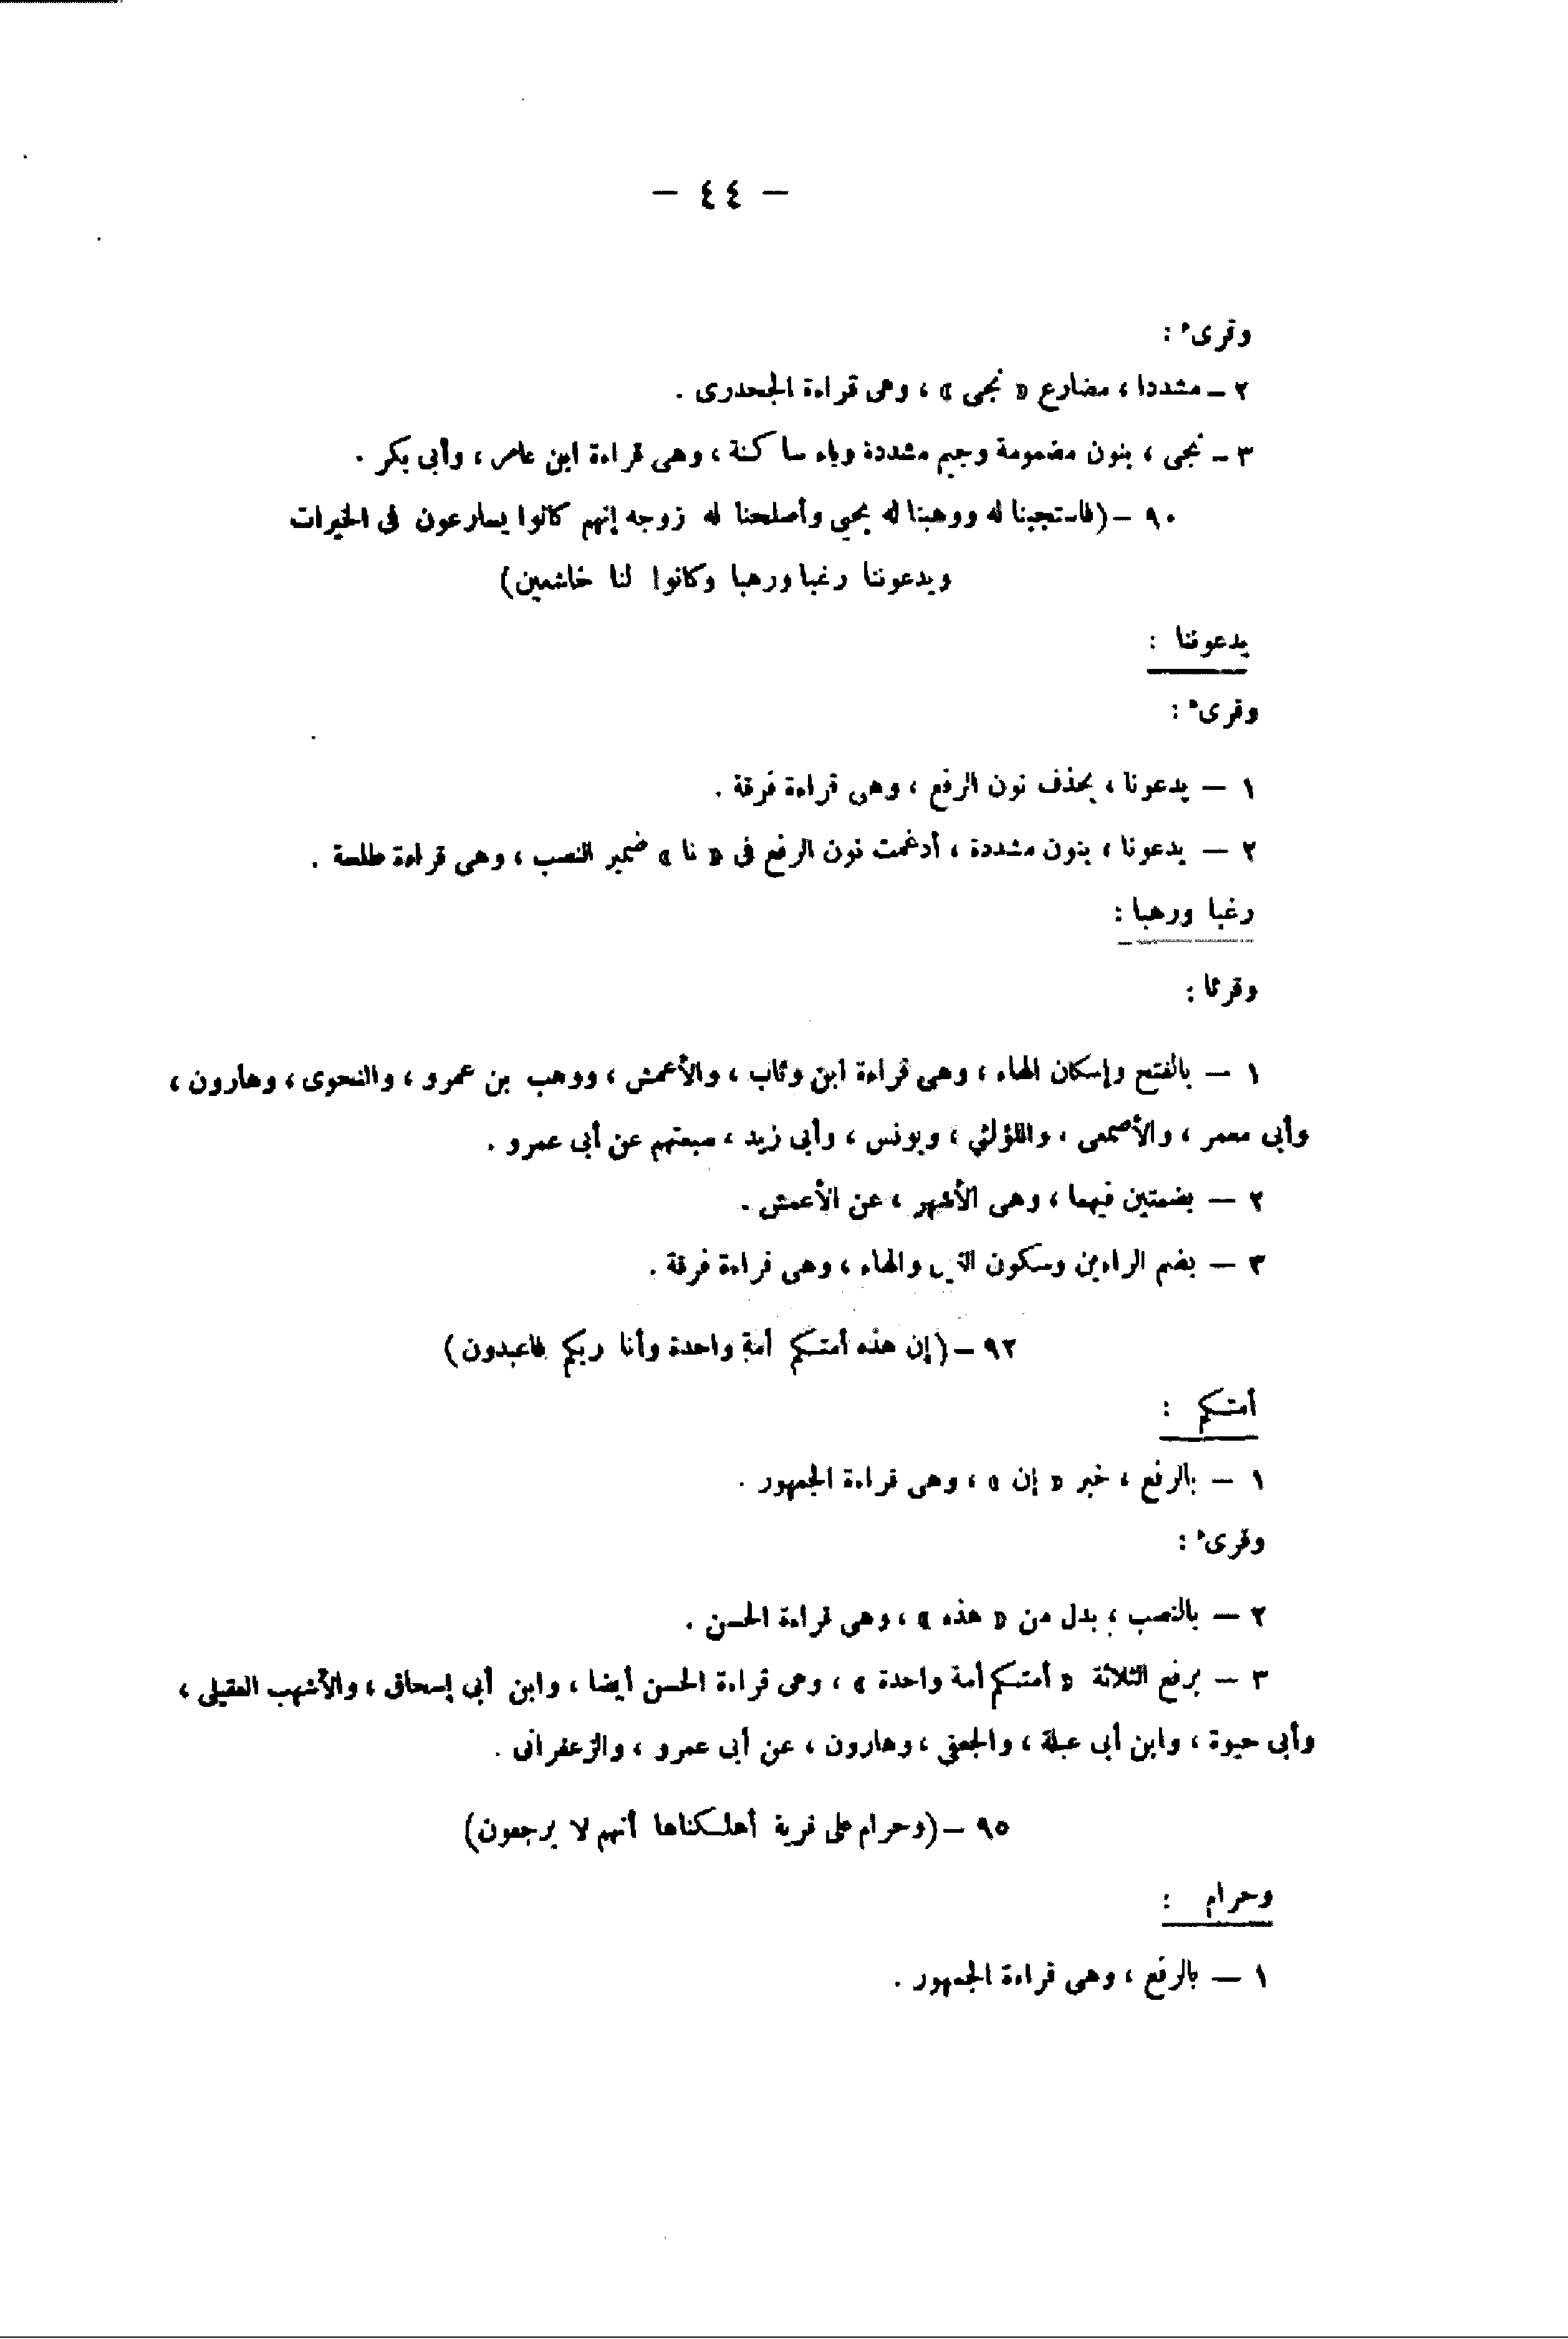 — ٤٤ —
وقرىء :
٢ — مشددا ، مضارع « نجى » ، وهى قراءة الجحدرى .
٣ — نجى ، بنون مضمومة وجيم مشددة وياء ساكنة ، وهى قراءة ابن عامر ، وأبى بكر .
٩٠ — (فاستجبنا له ووهبنا له يحيى وأصلحنا له زوجه إنهم كانوا يسارعون فى الخيرات
ويدعوننا رغبا ورهبا وكانوا لنا خاشعين)
يدعوننا :
وقرىء :
١ — يدعونا ، بحذف نون الرفع ، وهى قراءة فرقة .
٢ — يدعونا ، بنون مشددة ، أدغمت نون الرفع فى « نا » ضمير النصب ، وهى قراءة طلحة .
رغبا ورهبا :
وقرئا :
١ — بالفتح وإسكان الهاء ، وهى قراءة ابن وثاب ، والأعمش ، ووهب بن عمرو ، والنحوى ، وهارون ،
وأبى معمر ، والأصمعى ، واللؤلئي ، ويونس ، وأبى زيد ، سبعتهم عن أبى عمرو .
٢ — بضمتين فيهما ، وهى الأشهر ، عن الأعمش .
٣ — بضم الراءين وسكون الغين والهاء ، وهى قراءة فرقة .
٩٢ — (إن هذه أمتكم أمة واحدة وأنا ربكم فاعبدون)
أمتكم :
١ — بالرفع ، خبر « إن » ، وهى قراءة الجمهور .
وقرىء :
٢ — بالنصب ، بدل من « هذه » ، وهى قراءة الحسن .
٣ — برفع الثلاثة « أمتكم أمة واحدة » ، وهى قراءة الحسن أيضا ، وابن أبي إسحاق ، والأشهب العقيلى ،
وأبى حيوة ، وابن أبى عبلة ، والجعفي ، وهارون ، عن أبى عمرو ، والزعفرانى .
٩٥ — (وحرام على قرية أهلكناها أنهم لا يرجعون)
وحرام :
١ — بالرفع ، وهى قراءة الجمهور .